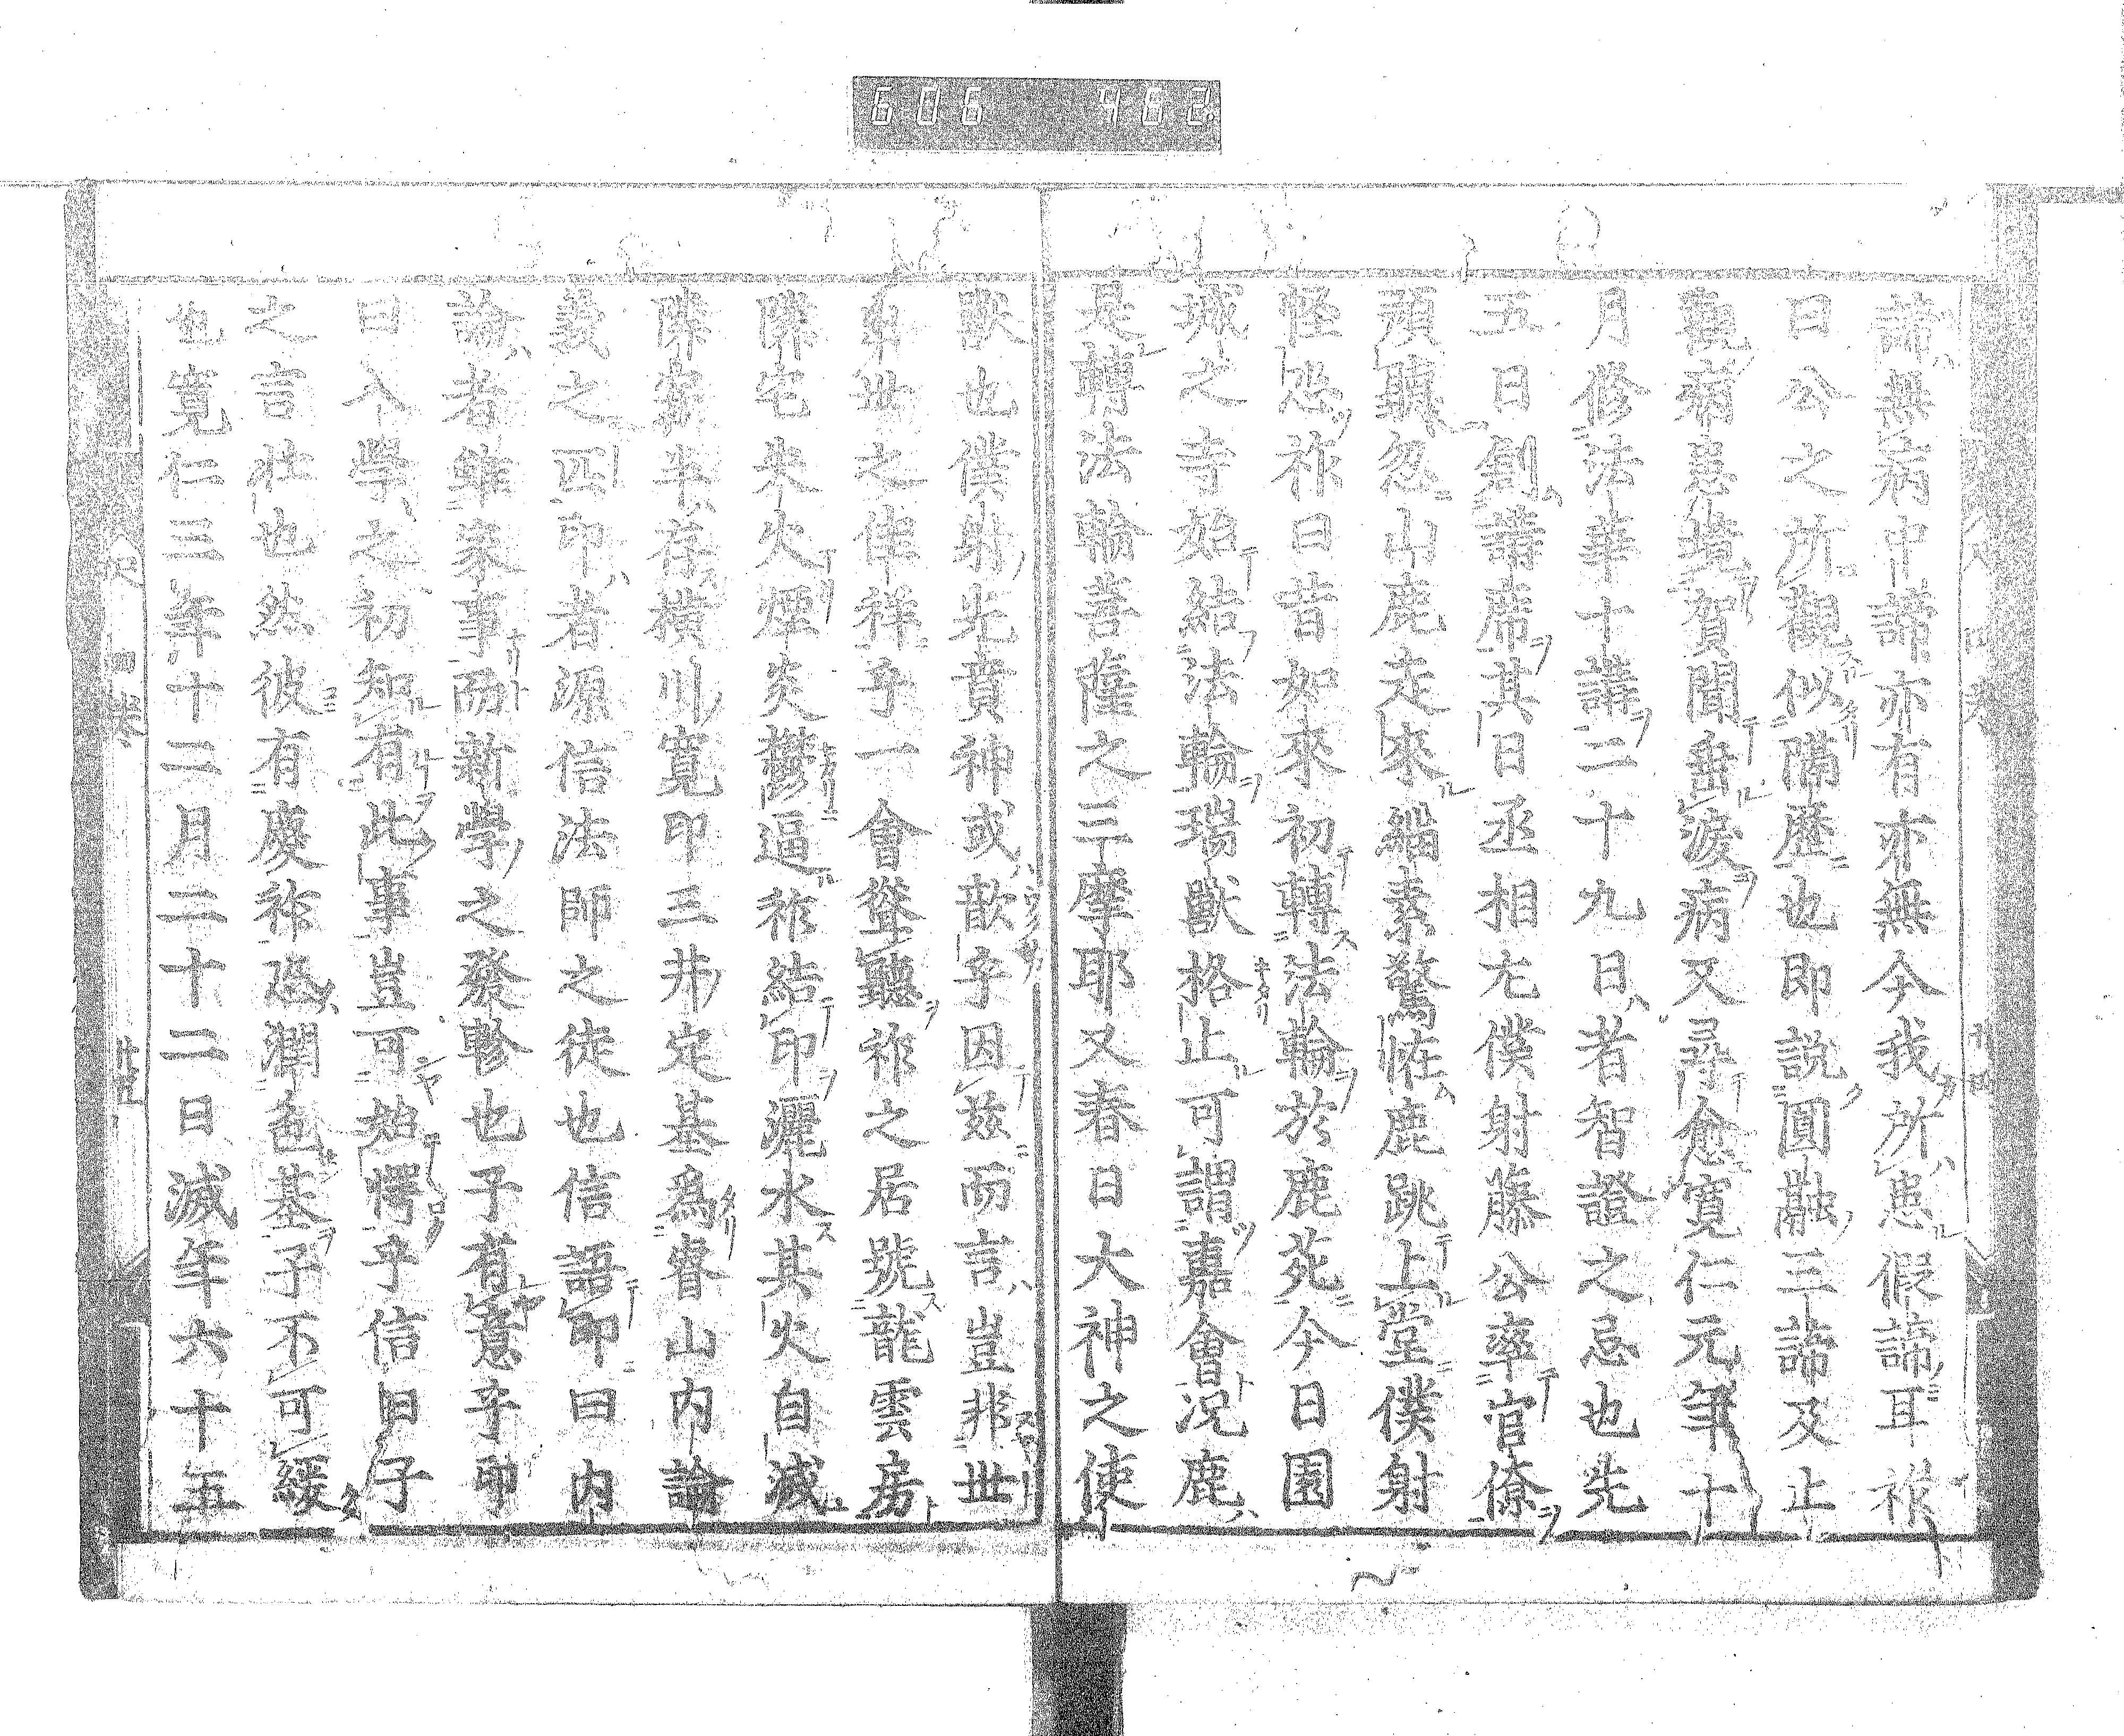 606 462
諦無病中諦亦有亦無今我所患假諦耳祚
曰公之所觀似隔歷也即説圓融三諦及止
觀病患境賀聞垂淚病又尋愈寬仁元年十
月修法華十講二十九日者智證之忌也先
五日創講席其日丞相左僕射藤公率官僚
預聽忽山鹿走來緇素驚恠鹿跳上堂僕射
怪恐祚曰昔如來初轉法輪於鹿苑今日園
城之寺始結法輪瑞獸格止可謂嘉會況鹿
是轉法輪菩薩之三摩耶又春日大神之使
獸也僕射先賁神或歆乎因茲而言豈非丗
年丗之佳祥乎一會聳聽祚之居號龍雲房
隣宅失火煙炎鬱逼祚結印灑水其火自滅
隣寮半存橫川寬印三井定基爲睿山内論
義之匹印者源信法師之徒也信語印曰内
論者雖家事而新學之發軫也子有意乎印
曰入學之初知有此事豈可始愕乎信曰子
之言壯也然彼有慶祚恐潤色基子不可緩
也寬仁三年十二月二十二日滅年六十五